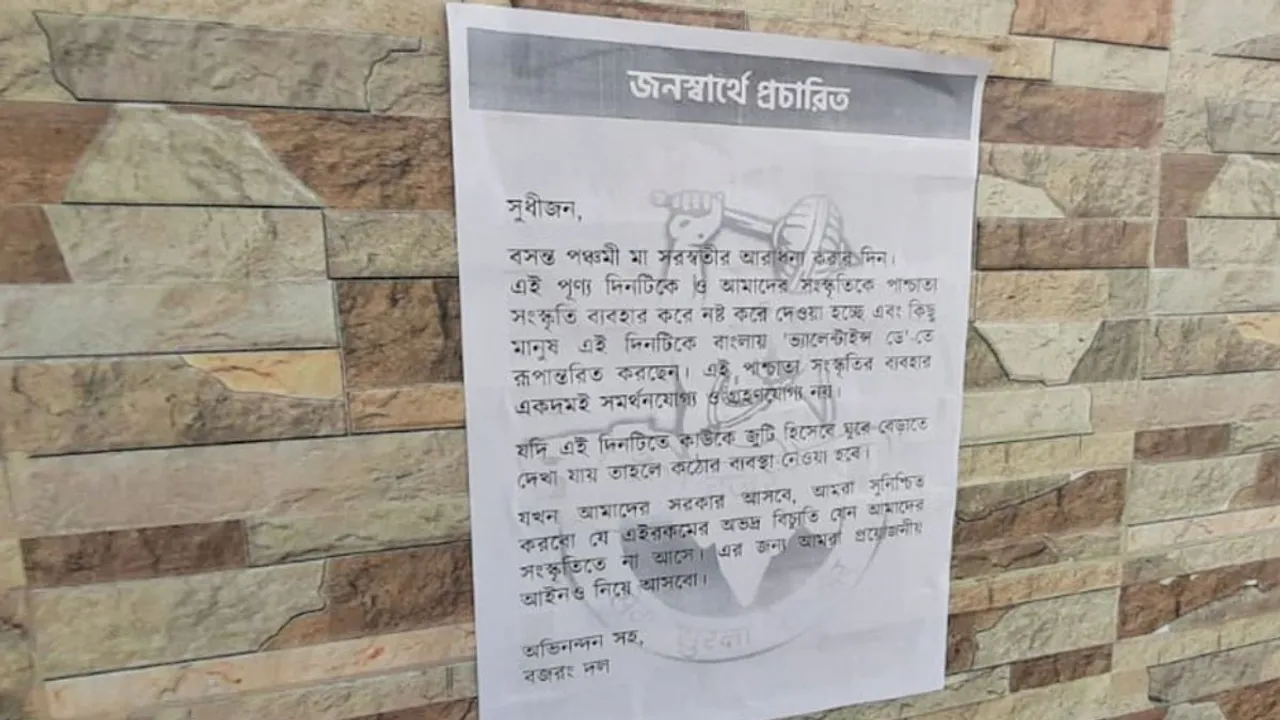 জনস্বার্থে প্রচারিত
সুধীজন,
বসন্ত পঞ্চমী মা সরস্বতীর আরাধনা করার দিন।
এই পূণ্য দিনটিকে ও আমাদের সংস্কৃতিকে পাশ্চাত্য
সংস্কৃতি ব্যবহার করে নষ্ট করে দেওয়া হচ্ছে এবং কিছু
মানুষ এই দিনটিকে বাংলায় 'ভ্যালেন্টাইন্স ডে'-তে
রূপান্তরিত করছেন। এই পাশ্চাত্য সংস্কৃতির ব্যবহার
একদমই সমর্থনযোগ্য ও গ্রহণযোগ্য নয়।
যদি এই দিনটিতে কাউকে জুটি হিসেবে ঘুরে বেড়াতে
দেখা যায় তাহলে কঠোর ব্যবস্থা নেওয়া হবে।
যখন আমাদের সরকার আসবে, আমরা সুনিশ্চিত
করবো যে এইরকমের অভদ্র বিচ্যুতি যেন আমাদের
সংস্কৃতিতে না আসে। এর জন্য আমরা প্রয়োজনীয়
আইনও নিয়ে আসবো।
অভিনন্দন সহ,
বজরং দল